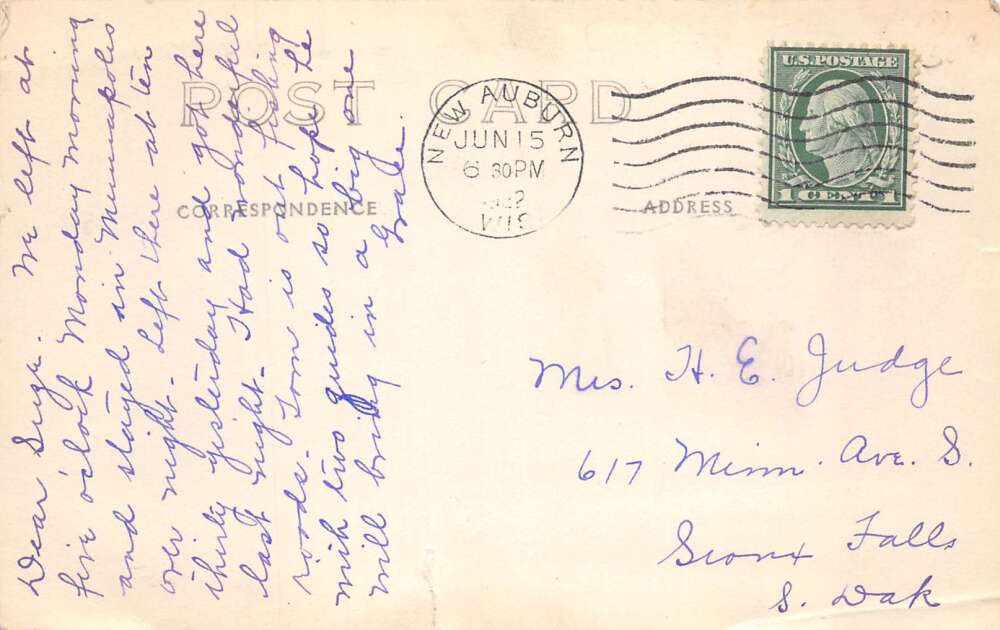 POST CARD
CORRESPONDENCE
ADDRESS
NEW AUBURN
JUN 15
6 30PM
WIS
U.S. POSTAGE
1 CENTS 1
Dear Suze. We left at
five o'clock Monday morning
and stayed in Minneapolis
over night. Left there at ten
thirty yesterday and got here
last night. Had wonderful
roads. Tom is out fishing
with two guides so hope he
will bring in a big one
Grace.
Mrs. H. E. Judge
617 Minn. Ave. S.
Sioux Falls
S. Dak